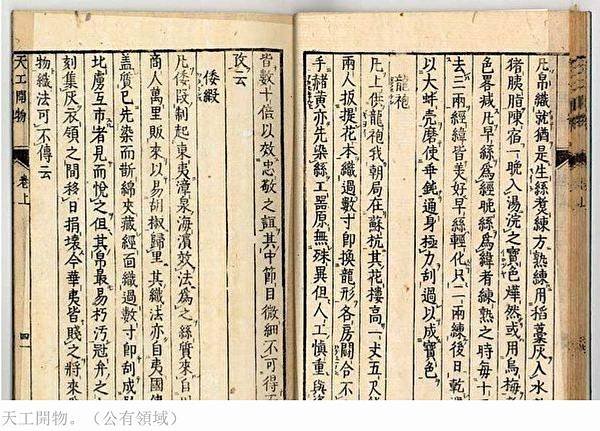 凡帛織就猶是生絲煮練方熟練用稻藁灰入水
猪胰脂陳宿一晚入湯浣之寶色燁然或用烏梅
色畧減凡早絲爲經晚絲爲緯者練熟之時每十
去三兩經緯皆美好早絲輕化只二兩練後日乾
以大蚌壳磨使乖鈍通身極力刮過以成寶色
龍袍
凡上供龍袍我朝局在蘇杭其花樓高一丈五尺
兩人扳提花本織過數寸即換龍形各房鬪合不
手赭黃亦先染絲工器原無殊異但人工慎重與
皆數十倍以效忠敬之誼其中節目微細不可得
攷云
倭緞
凡倭緞制起東夷漳泉海濱效法爲之絲質來自川
商人萬里販來以易胡椒歸里其織法亦自夷國傳
盖質已先染而斷綿夾藏經面織過數寸即刮成
比虜互市者見而悅之但其帛最易朽汚冠弁之
刻集灰衣領之間移日損壞今華夷皆賤之將來
物織法可不傳云
天工開物 卷上 四一
天工開物。（公有領域）